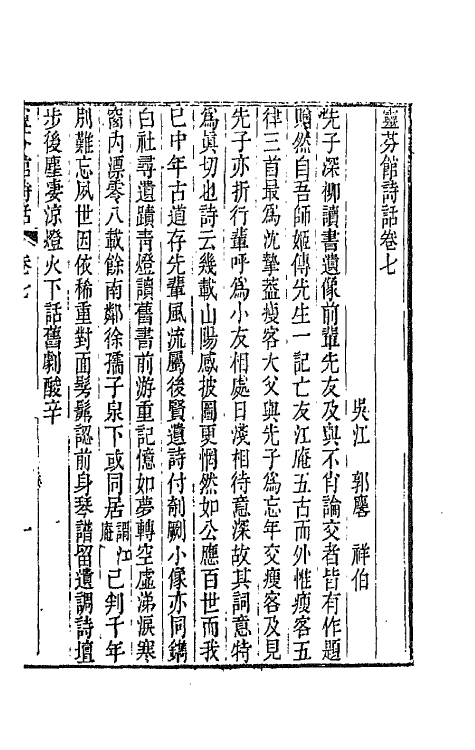 靈芬館詩話卷七
吳江　郭麐　祥伯
先子深柳讀書遺像前輩先友及與不肖論交者皆有作題
贈然自吾師姬傳先生一記亡友江庵五古而外惟瘦客五
律三首最為沈摯蓋瘦客大父與先子為忘年交瘦客及見
先子亦折行輩呼為小友相處日淺相待意深故其詞意特
為眞切也詩云幾載山陽感披圖更惘然如公應百世而我
已中年古道存先輩風流屬後賢遺詩付剞劂小像亦同鐫
白社尋遺蹟靑燈讀舊書前游重記憶如夢轉空虛涕淚寒
窗內漂零八載餘南鄰徐孺子泉下或同居謂江庵己判千年
別難忘夙世因依稀重對面髣髴認前身琴譜留遺調詩壇
步後塵凄涼燈火下話舊劇酸辛
靈芬館詩話　卷七　一